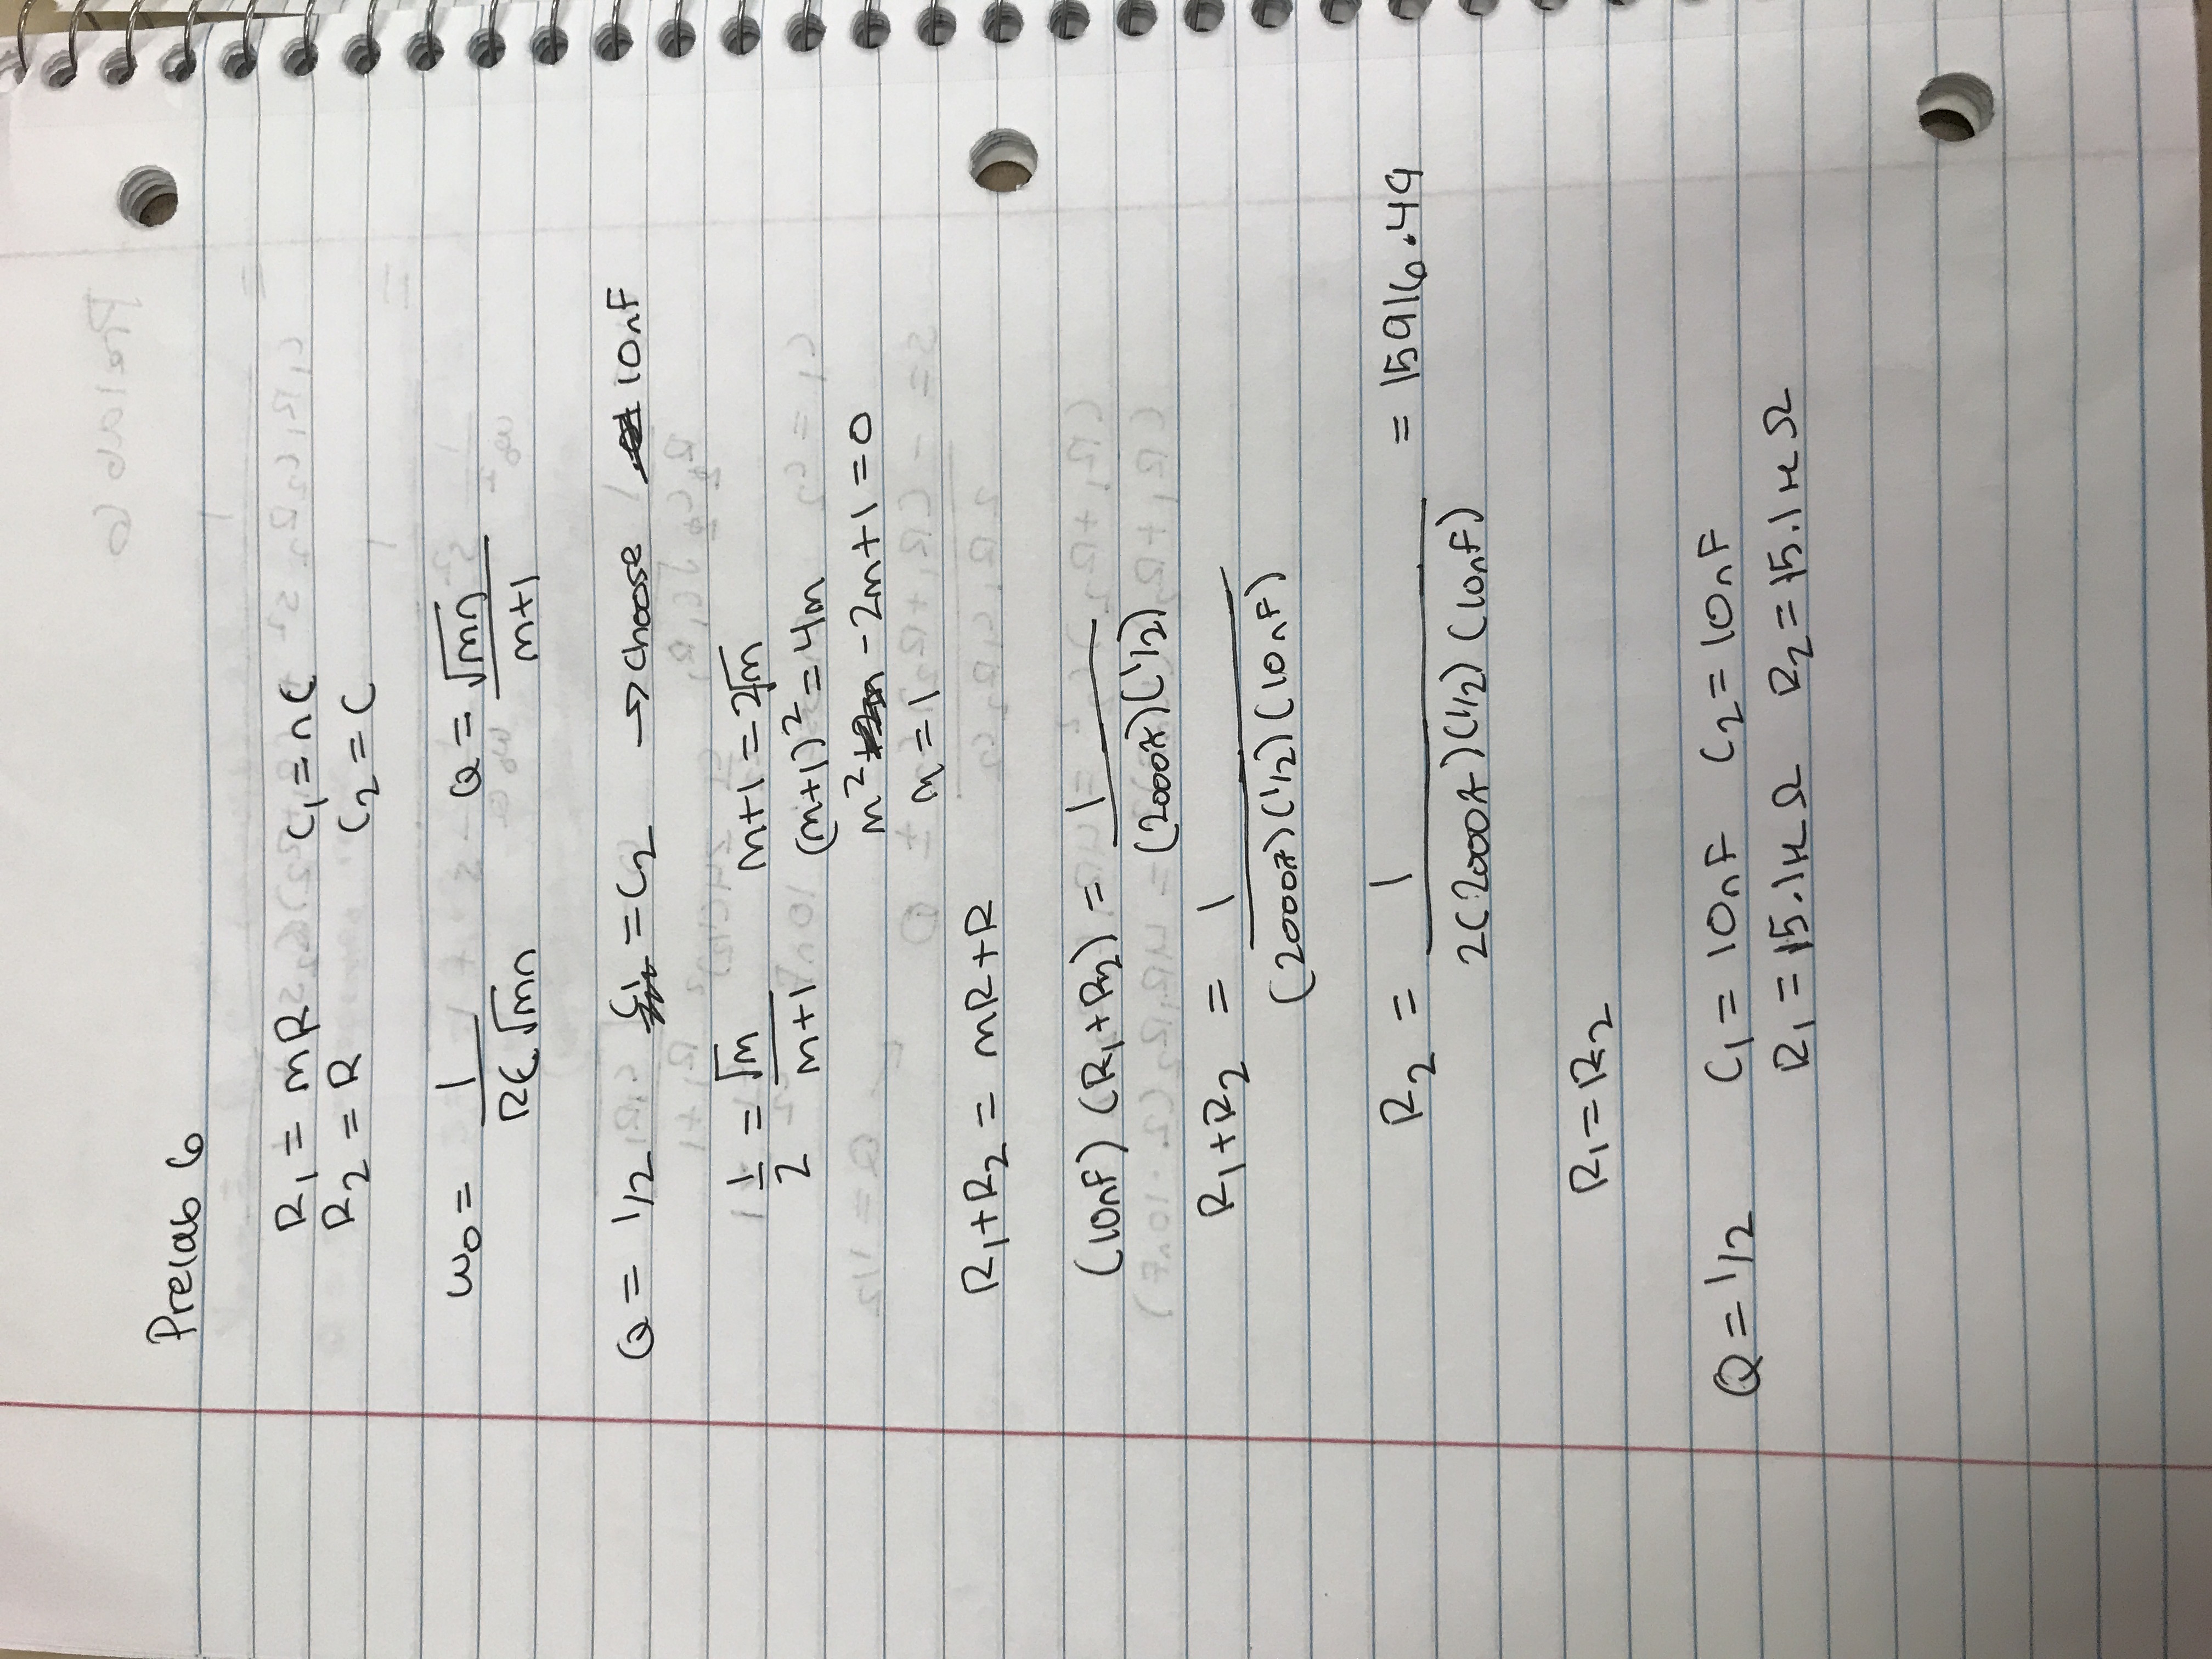 Prelab 6
R₁ = mR C₁ = nC
R₂ = R C₂ = C
ω₀ = 1/(RC√mn) Q = √mn/(m+1)
Q = 1/2 C₁ = C₂ → choose 10nF
1/2 = √m/(m+1) m+1 = 2√m
(m+1)² = 4m
m² - 2m + 1 = 0
m = 1
R₁+R₂ = mR+R
(10nF) (R₁+R₂) = 1/((2000π)(1/2))
R₁+R₂ = 1/((2000π)(1/2)(10nF))
R₂ = 1/(2(2000π)(1/2)(10nF)) = 15916.49
R₁ = R₂
Q = 1/2 C₁ = 10nF C₂ = 10nF
R₁ = 15.1kΩ R₂ = 15.1kΩ